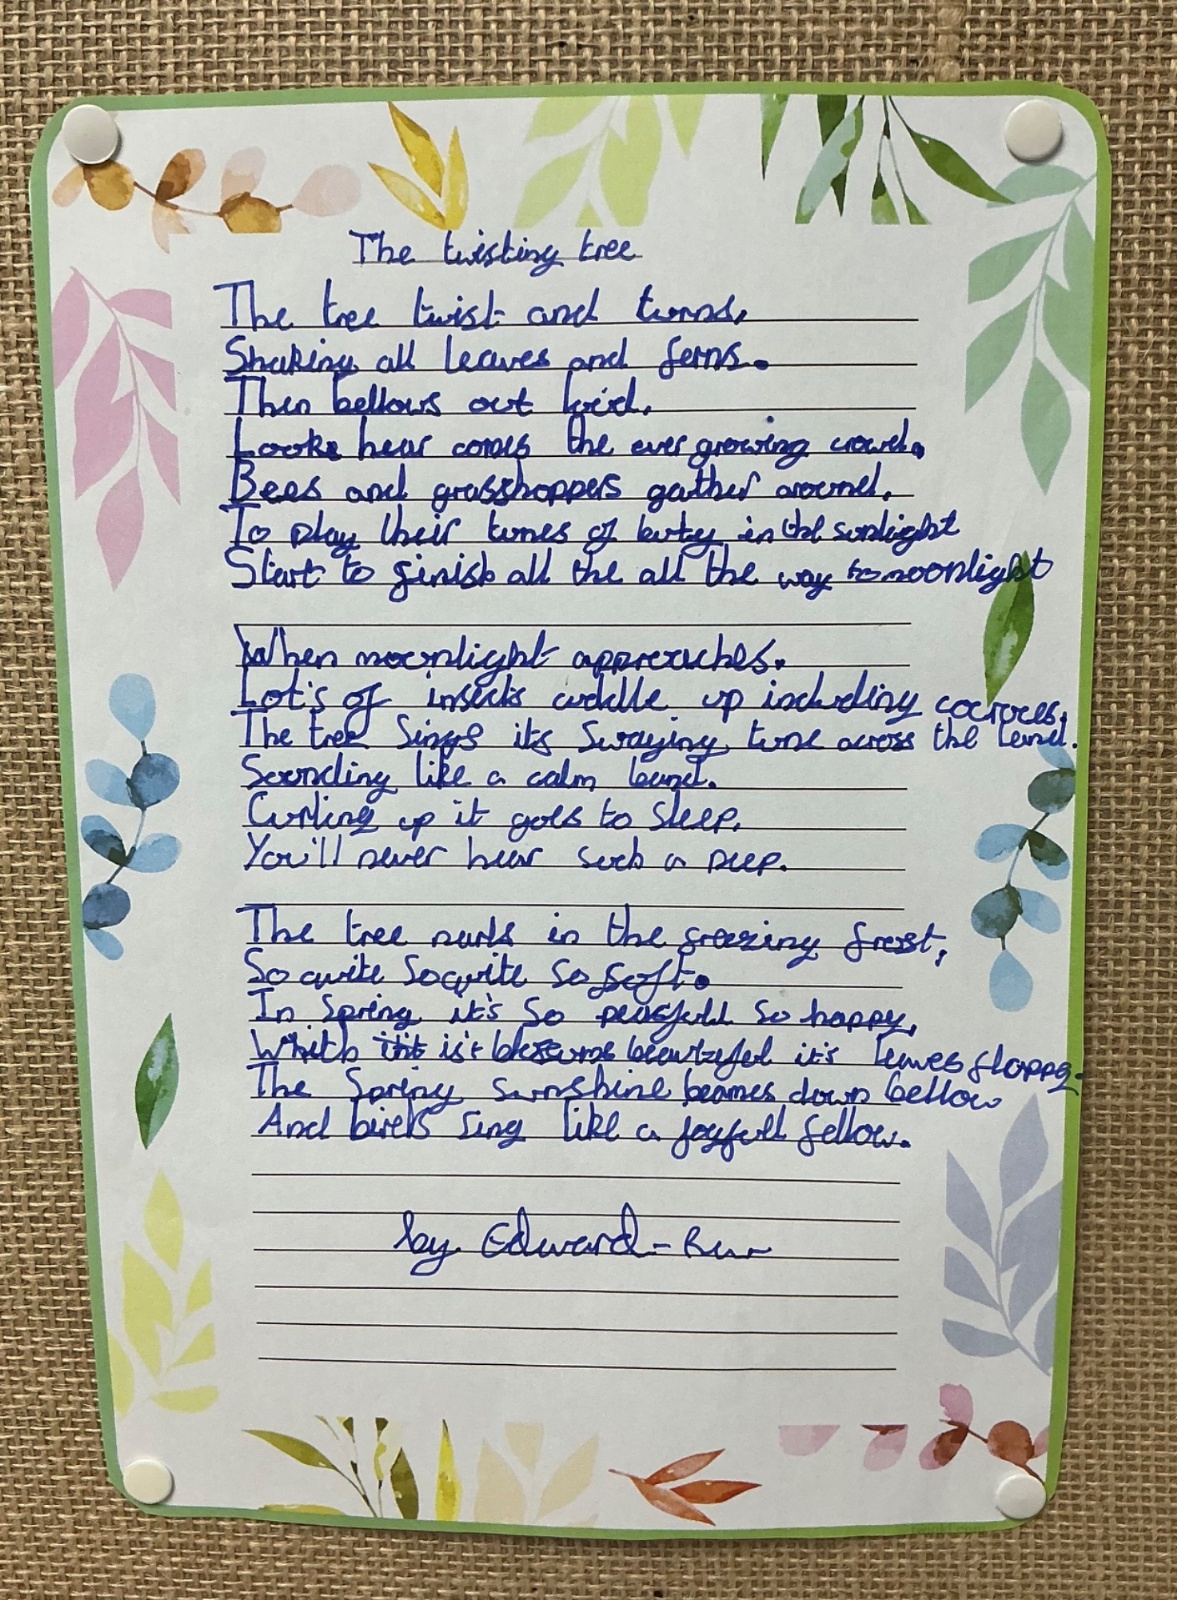 The twisting tree
The tree twist and turns,
Shaking all leaves and ferns.
Then bellows out
Looks hear comes the ever growing crowd.
Bees and grasshoppers gather around,
To play their tunes of buty in the sunlight
Start to finish all the all the way to moonlight
When moonlight approaches.
Lot's of insects cuddle up including cocroces,
The tree Sings its Swaying tune across the land.
Sounding like a calm band.
Curling up it goes to sleep,
You'll never hear such a peep.
The tree curls in the freezing frost,
So quite So quite So Soft.
In Spring it's So peasfull So happy,
Whith blossums beautyful it's leaves flappy.
The Spring Sunshine beames down bellow
And birds Sing like a joyfull fellow.
by Edward-